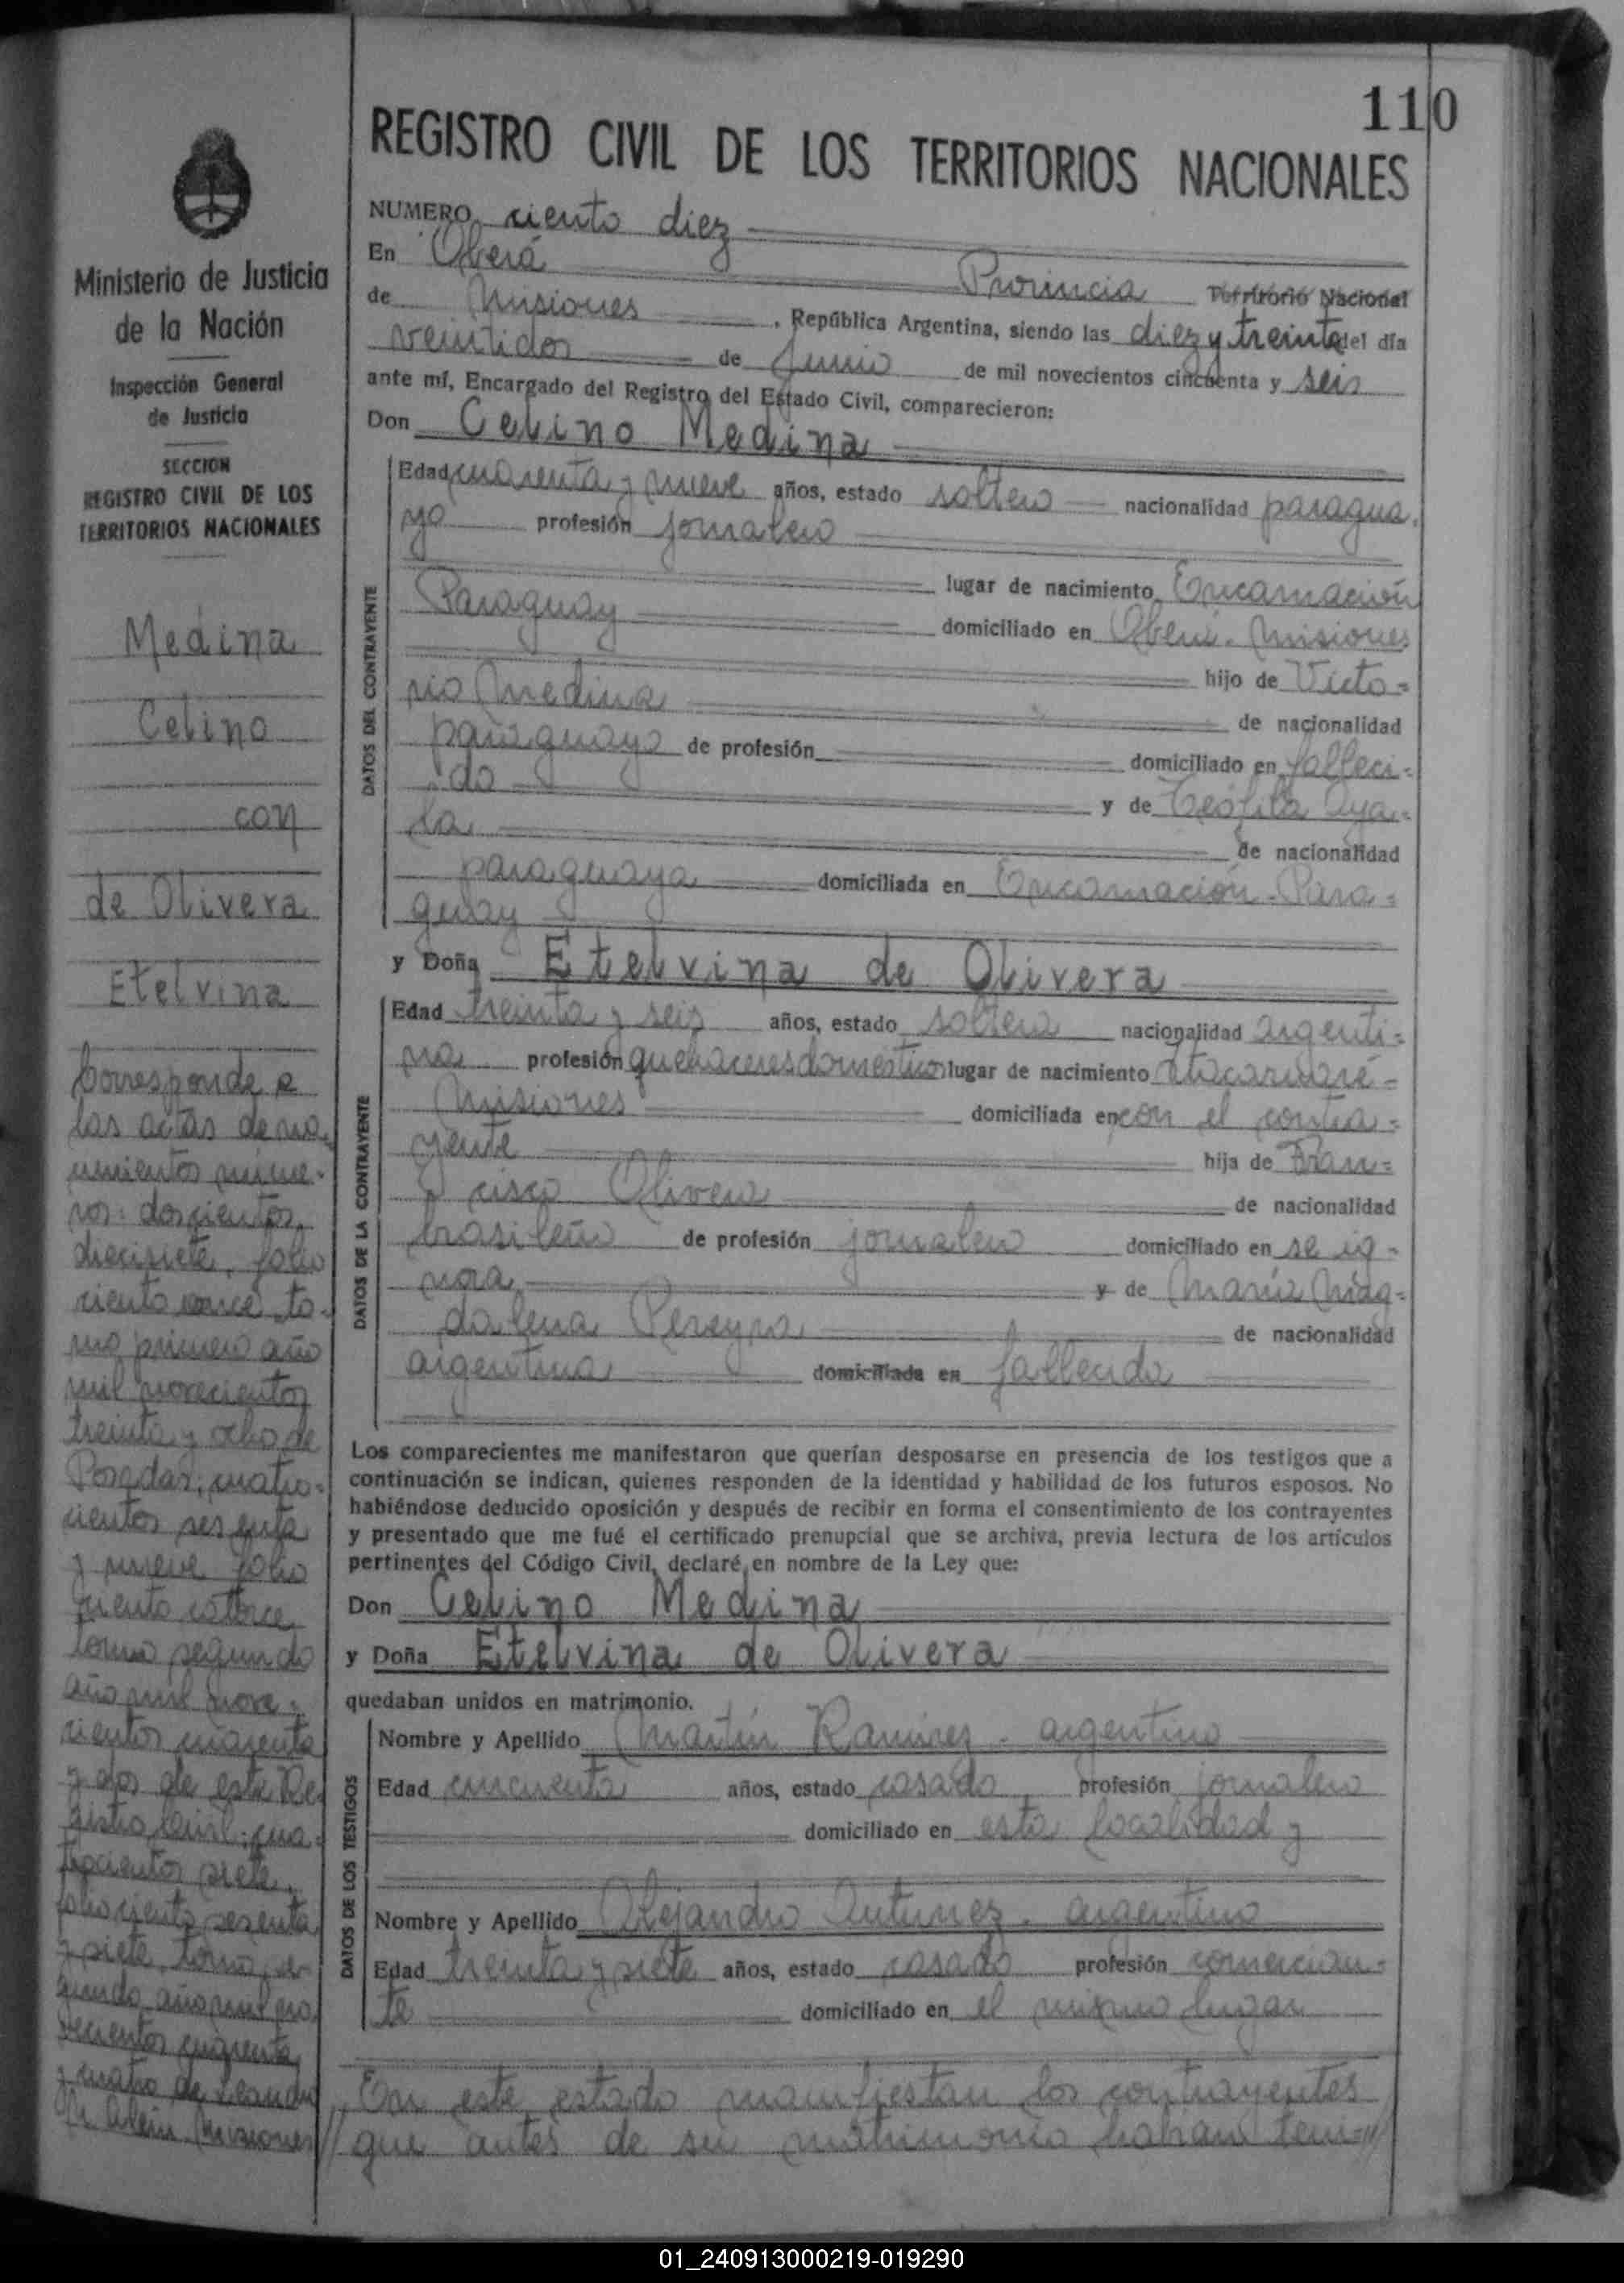 110
REGISTRO CIVIL DE LOS TERRITORIOS NACIONALES
Ministerio de Justicia
de la Nación
Inspección General
de Justicia
SECCION
REGISTRO CIVIL DE LOS
TERRITORIOS NACIONALES
Medina
Celino
con
de Olivera
Etelvina
Corresponde a
las actas de na
cimientos núme-
ros: doscientos
diecisiete, folio
ciento once to-
mo primero año
mil novecientos
treinta y ocho de
Posadas; cuatro-
cientos sesenta
y nueve folio
ciento catorce
tomo segundo
año mil nove-
cientos cuarenta
y dos de este Re-
gistro Civil; cua-
trocientos siete,
folio ciento sesenta
y siete, tomo, se-
gundo año mil no
vecientos cuarenta
y cuatro de Leandro
N. Alem Misiones//
NUMERO ciento diez
En Oberá Provincia Territorio Nacional
de Misiones , República Argentina, siendo las diez y treinta del día
veintidos de Junio de mil novecientos cincuenta y seis
ante mí, Encargado del Registro del Estado Civil, comparecieron:
Don Celino Medina
DATOS DEL CONTRAYENTE
Edad cuarenta y nueve años, estado soltero nacionalidad paragua-
yo profesión jornalero
lugar de nacimiento Encarnación
Paraguay domiciliado en Oberá-Misiones
hijo de Victo=
rio Medina de nacionalidad
paraguayo de profesión domiciliado en falleci=
do y de Teófila Aya=
la de nacionalidad
paraguaya domiciliada en Encarnación-Para=
guay
y Doña Etelvina de Olivera
DATOS DE LA CONTRAYENTE
Edad treinta y seis años, estado soltera nacionalidad argenti=
na profesión quehaceres domésticos lugar de nacimiento Itacaruaré-
Misiones domiciliada en con el contra=
yente hija de Fran=
cisco Olivera de nacionalidad
brasileño de profesión jornalero domiciliado en se ig=
nora y de María Mag=
dalena Pereyra de nacionalidad
argentina domiciliada en fallecida
Los comparecientes me manifestaron que querían desposarse en presencia de los testigos que a
continuación se indican, quienes responden de la identidad y habilidad de los futuros esposos. No
habiéndose deducido oposición y después de recibir en forma el consentimiento de los contrayentes
y presentado que me fué el certificado prenupcial que se archiva, previa lectura de los artículos
pertinentes del Código Civil, declaré en nombre de la Ley que:
Don Celino Medina
y Doña Etelvina de Olivera
quedaban unidos en matrimonio.
DATOS DE LOS TESTIGOS
Nombre y Apellido Martín Ramirez - argentino
Edad cincuenta años, estado casado profesión jornalero
domiciliado en esta localidad y
Nombre y Apellido Alejandro Antunez - argentino
Edad treinta y siete años, estado casado profesión comercian=
te domiciliado en el mismo lugar
En este estado manifiestan los contrayentes
que antes de su matrimonio habían teni=//
01_240913000219-019290